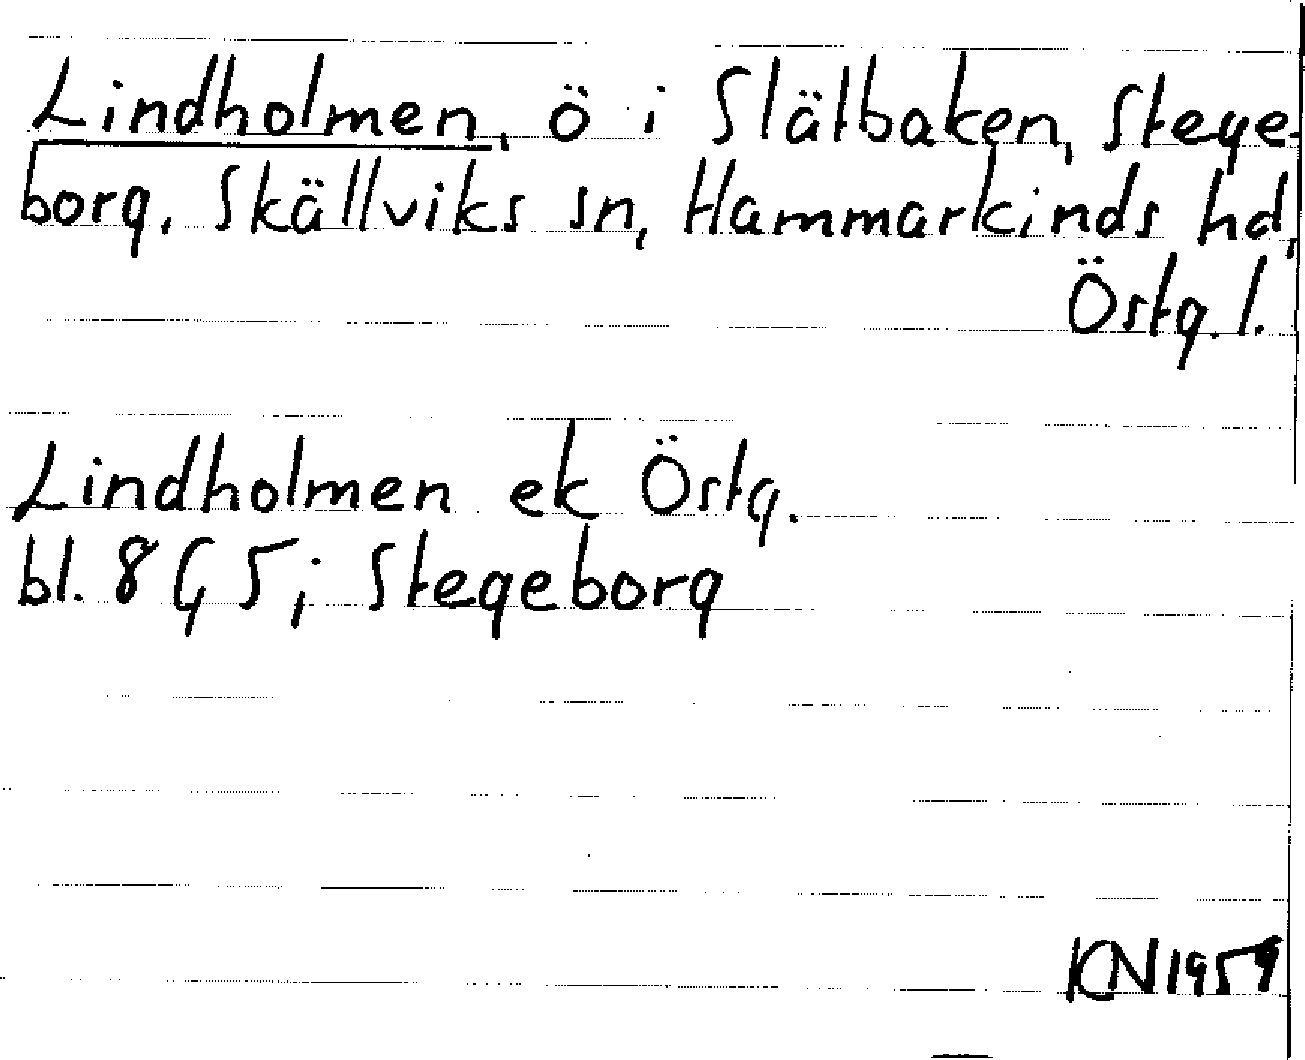 Lindholmen, ö i Slätbaken, Stege-
borg, Skällviks sn, Hammarkinds hd,
Östg. l.
Lindholmen ek Östg.
bl. 8 G 5; Stegeborg
KN 1959